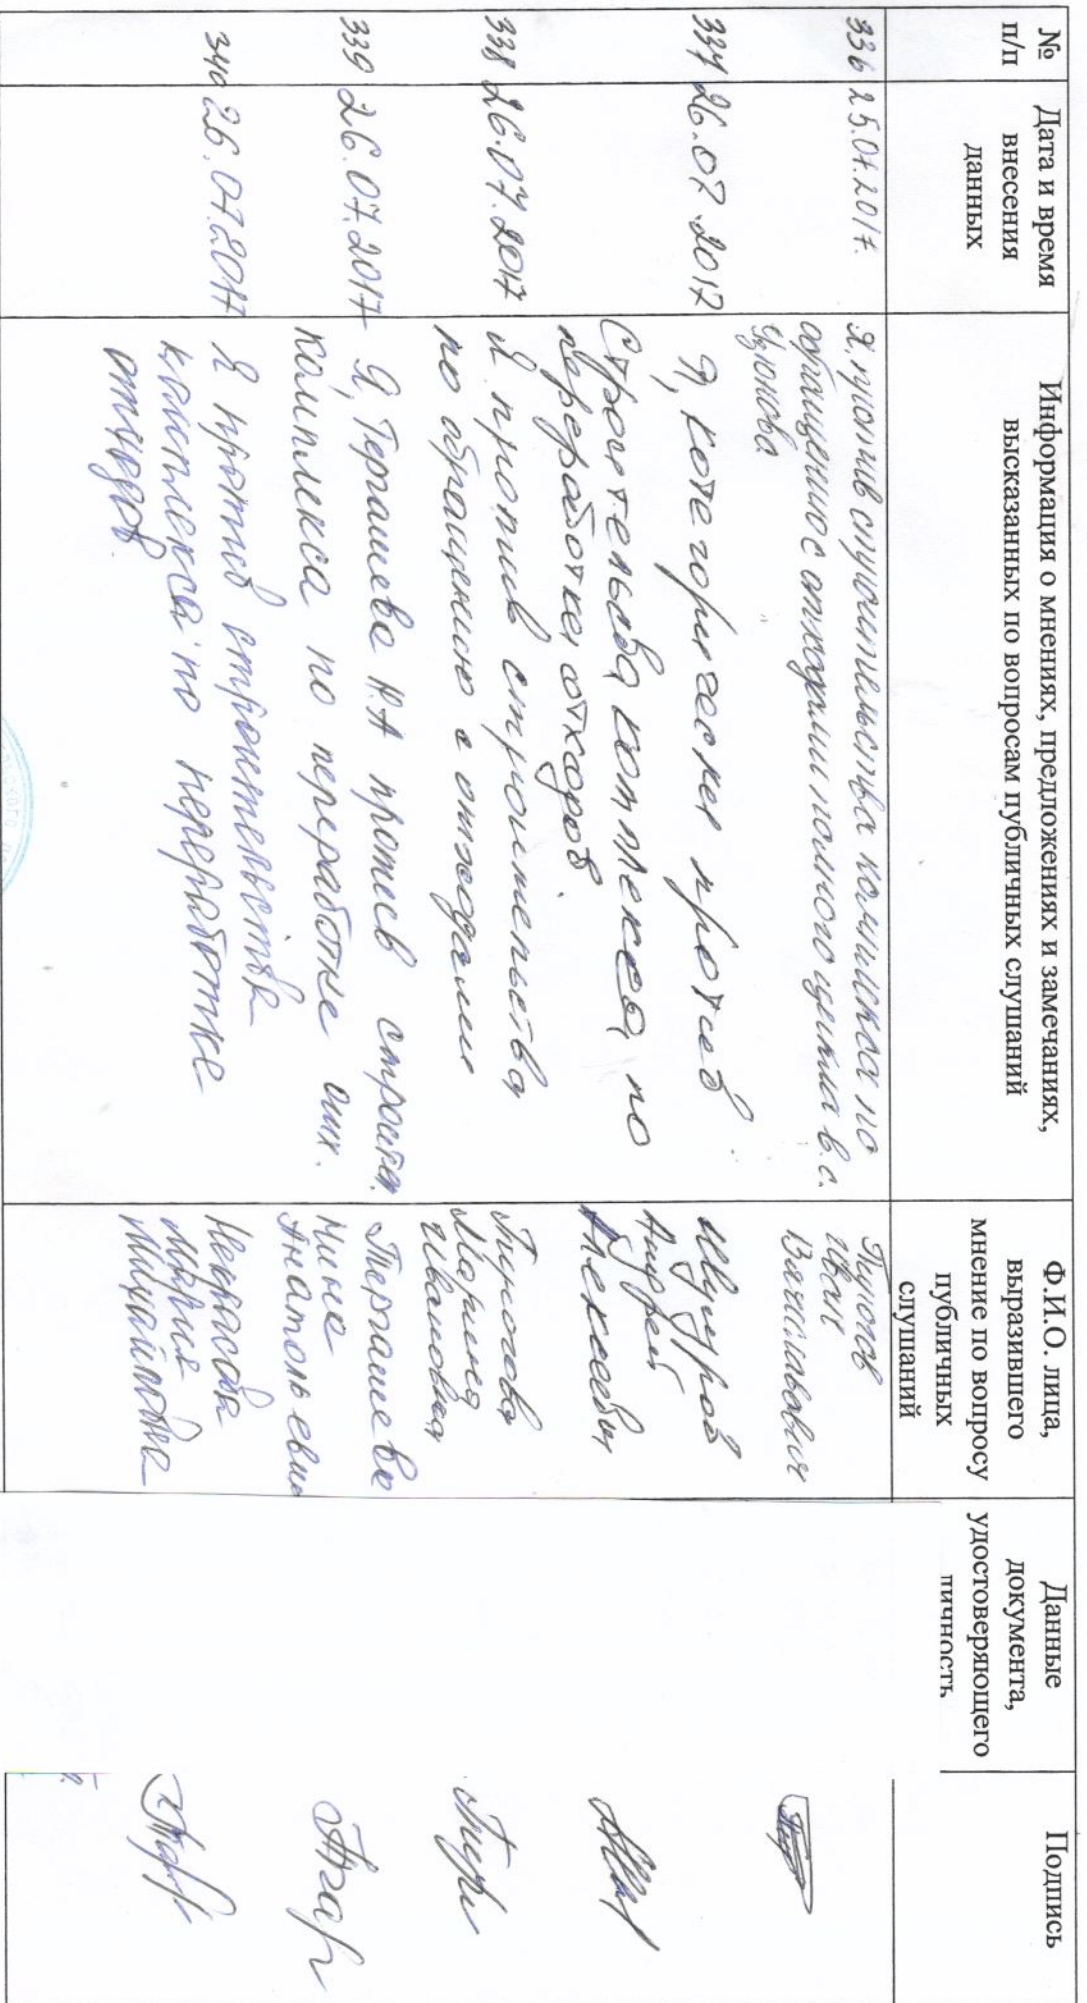 № п/п
Дата и время внесения данных
Информация о мнениях, предложениях и замечаниях,
высказанных по вопросам публичных слушаний
Ф.И.О. лица,
выразившего
мнение по вопросу
публичных
слушаний
Данные
документа,
удостоверяющего
личность
Подпись
336 25.07.2017.
Я, против строительства комплекса по
обращению с отходами полного цикла в с.
Узюково
Вячеславович
337 26.07.2017
Я, категорически против
строительства комплекса по
переработке отходов
Андрей
Алексеевич
338 26.07.2017
Я против строительства
по обращению с отходами
Пирогова
Марина
Ивановна
339 26.07.2017
Я, Тергашева Н.А против строит.
комплекса по переработке отх.
Тергашева
Нина
Анатольевна
340 26.07.2017
Я против строительства
комплекса по переработке
отходов.
Некрасова
Мария
Михайловна